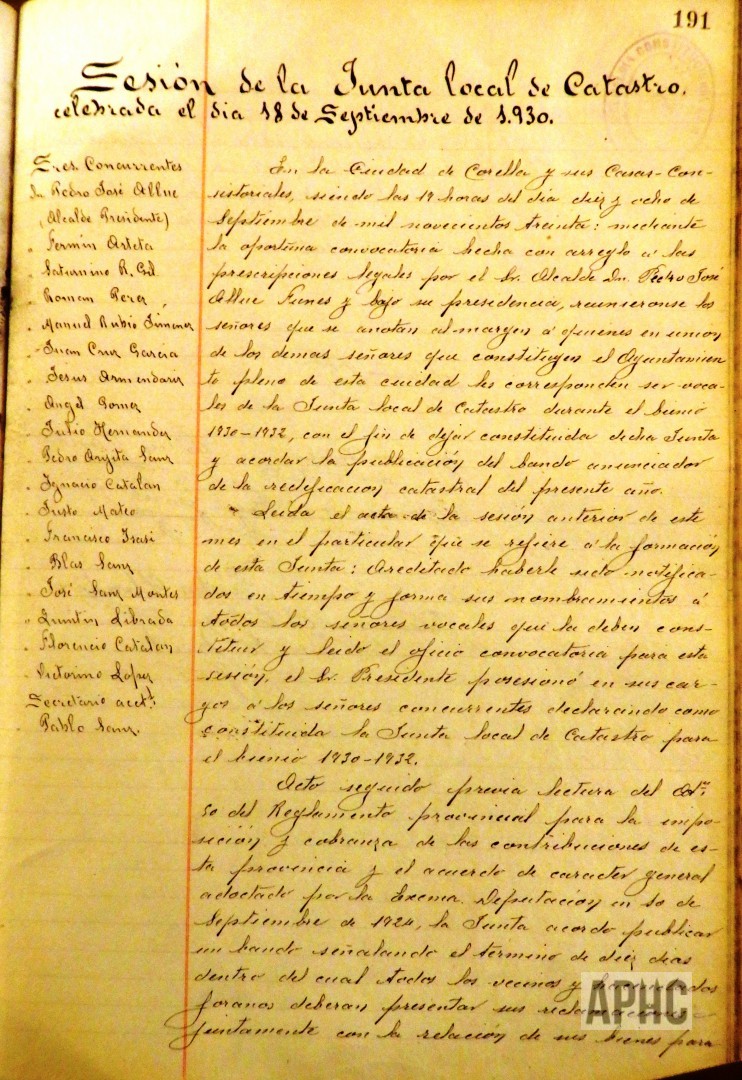 191
Sesión de la Junta local de Catastro.
celebrada el dia 18 de Septiembre de 1.930.
Sres. Concurrentes
Dn Pedro José Allue
(Alcalde Presidente)
" Fermín Arteta
" Saturnino R. Gil
" Roman Perez
" Manuel Rubio Jimenez
" Juan Cruz Garcia
" Jesus Armendariz
" Angel Gomez
" Julio Hernandez
" Pedro Argita Sanz
" Ignacio Catalan
" Justo Mateo
" Francisco Isasi
" Blas Sanz
" José Sanz Montes
" Quintin Librada
" Florencio Catalan
" Victorino Lopez
Secretario acctl.
" Pablo Sanz.
En la Ciudad de Corella y sus Casas-Con-
sistoriales, siendo las horas del dia diez y ocho de
Septiembre de mil novecientos treinta: mediante
la oportuna convocatoria hecha con arreglo á las
prescripciones legales por el Sr. Alcalde Dn. Pedro José
Allue Funes y bajo su presidencia, reunieronse los
señores que se anotan al margen á quienes en union
de los demas señores que constituyen el Ayuntamien
to pleno de esta ciudad les corresponden ser voca-
les de la Junta local de Catastro durante el bienio
1930-1932, con el fin de dejar constituida dicha Junta
y acordar la publicación del bando anunciador
de la rectificacion catastral del presente año.
Leida el acta de la sesión anterior de este
mes en el particular que se refiere á la formación
de esta Junta: Acreditado haberle sido notifica-
dos en tiempo y forma sus nombramientos á
todos los señores vocales que la deben cons-
tituir y leido el oficio convocatoria para esta
sesión, el Sr. Presidente posesionó en sus car-
gos á los señores concurrentes declarando como
constituida la Junta local de Catastro para
el bienio 1930-1932.
Acto seguido previa lectura del Art.
50 del Reglamento provincial para la impo-
sición y cobranza de las contribuciones de es-
ta provincia y el acuerdo de caracter general
adoctado por la Excma. Deputación en 30 de
Septiembre de 1924, la Junta acordo publicar
un bando señalando el termino de diez dias
dentro del cual todos los vecinos y hacendados
foranos deberan presentar sus reclamaciones
juntamente con la relación de sus bienes para
APHC